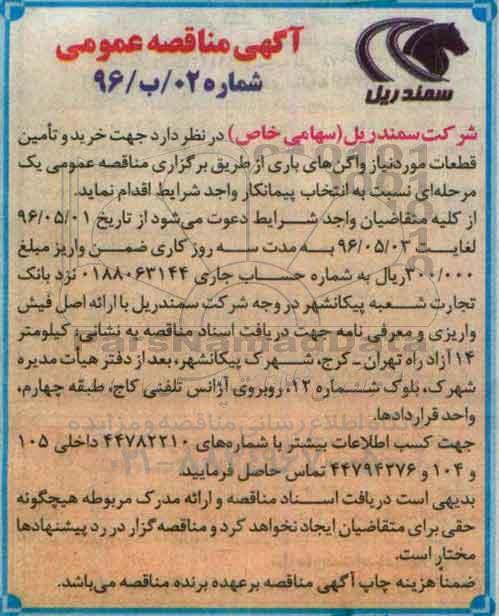 آگهی مناقصه عمومی
شماره ۰۲/ب/۹۶
سمندریل
شرکت سمندریل (سهامی خاص) در نظر دارد جهت خرید و تأمین
قطعات مورد نیاز واگن های باری از طریق برگزاری مناقصه عمومی یک
مرحله‌ای نسبت به انتخاب پیمانکار واجد شرایط اقدام نماید.
از کلیه متقاضیان واجد شرایط دعوت می‌شود از تاریخ ۹۶/۰۵/۰۱
لغایت ۹۶/۰۵/۰۳ به مدت سه روز کاری ضمن واریز مبلغ
۳۰۰/۰۰۰ریال به شماره حساب جاری ۰۱۸۸۰۶۳۱۴۴ نزد بانک
تجارت شعبه پیکانشهر در وجه شرکت سمندریل با ارائه اصل فیش
واریزی و معرفی نامه جهت دریافت اسناد مناقصه به نشانی: کیلومتر
۱۴ آزاد راه تهران ـ کرج، شهرک پیکانشهر، بعد از دفتر هیأت مدیره
شهرک، بلوک شماره ۱۲، روبروی آژانس تلفنی کاج، طبقه چهارم،
واحد قراردادها.
جهت کسب اطلاعات بیشتر با شماره‌های ۴۴۷۸۲۲۱۰ داخلی ۱۰۵
و ۱۰۴ و ۴۴۷۹۴۲۷۶ تماس حاصل فرمایید.
بدیهی است دریافت اسناد مناقصه و ارائه مدرک مربوطه هیچگونه
حقی برای متقاضیان ایجاد نخواهد کرد و مناقصه گزار در رد پیشنهادها
مختار است.
ضمناً هزینه چاپ آگهی مناقصه برعهده برنده مناقصه می‌باشد.
ParsNamadData